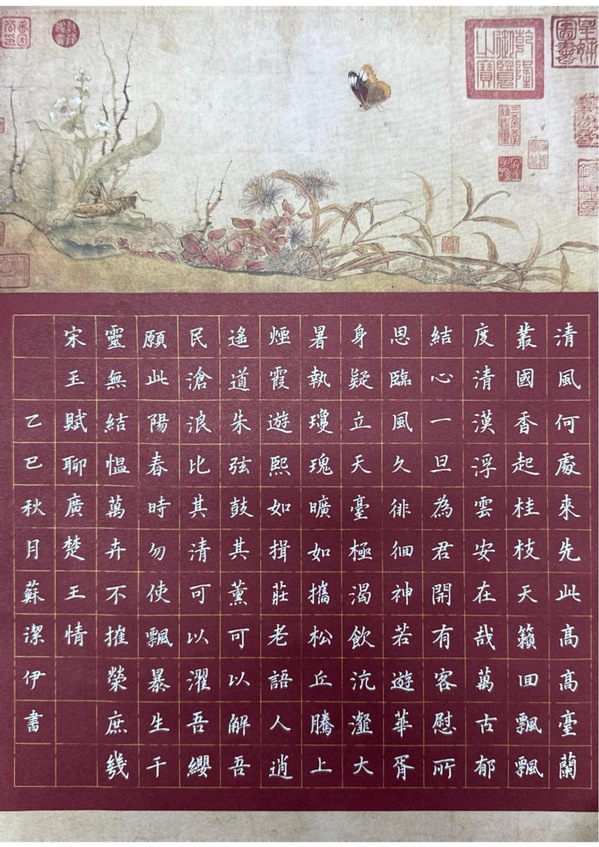 皇姊圖書
乾隆御覽之寶
清風何處來先此高高臺蘭
叢國香起桂枝天籟回飄飄
度清漢浮雲安在哉萬古郁
結心一旦為君開有客慰所
思臨風久徘徊神若遊華胥
身疑立天臺極渴飲沆瀣大
暑執瓊瑰曠如攜松丘騰上
煙霞遊熙如揖莊老語人逍
遙道朱弦鼓其薰可以解吾
民滄浪比其清可以濯吾纓
願此陽春時勿使飄暴生千
靈無結慍萬卉不摧榮庶幾
宋玉賦聊廣楚王情
乙巳秋月蘇潔伊書